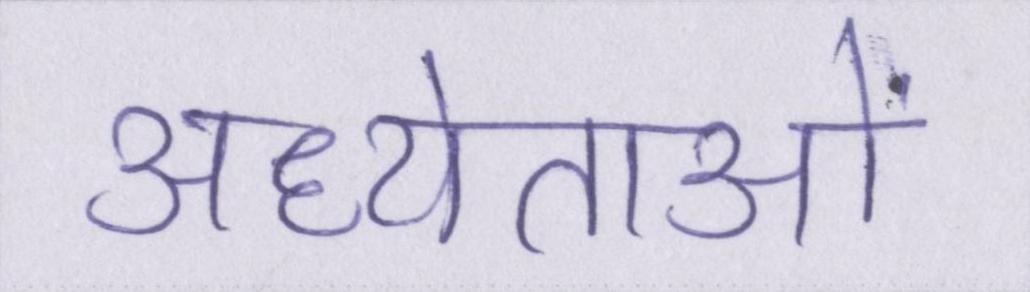 अध्येताओं